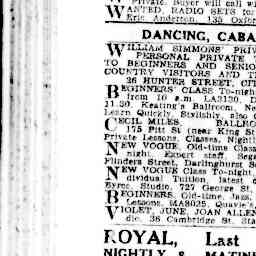 Private. Buyer will call wi
WANTED, RADIO SETS for
Eric Anderton, 135 Oxfor
DANCING, CABA
WILLIAM SIMMONS' PRIV
PERSONAL PRIVATE
TO BEGINNERS AND SENIO
COUNTRY VISITORS AND T
26 HUNTER STREET, CIT
BEGINNERS' CLASS To-nigh
from 10 a.m. LA3130.
11.30. Keating's Ballroom, Ne
Learn Quickly, Stylishly, also
CECIL MILES, BALLRO
175 Pitt St (near King St
Private Lessons, Classes, Nightl
NEW VOGUE, Old-time Class
night. Expert staff. Beg
Flinders Street, Darlinghurst
NEW VOGUE Class To-night
dividual Tuition, latest
Byres, Studio, 727 George St.
BEGINNERS, Old-time, Jazz,
Lessons. MA8035. Quavle's
VIOLET, JUNE, JOAN ALLEN
die. 36 Cambridge St. Sta
ROYAL, Last
NIGHTLY & MATINE